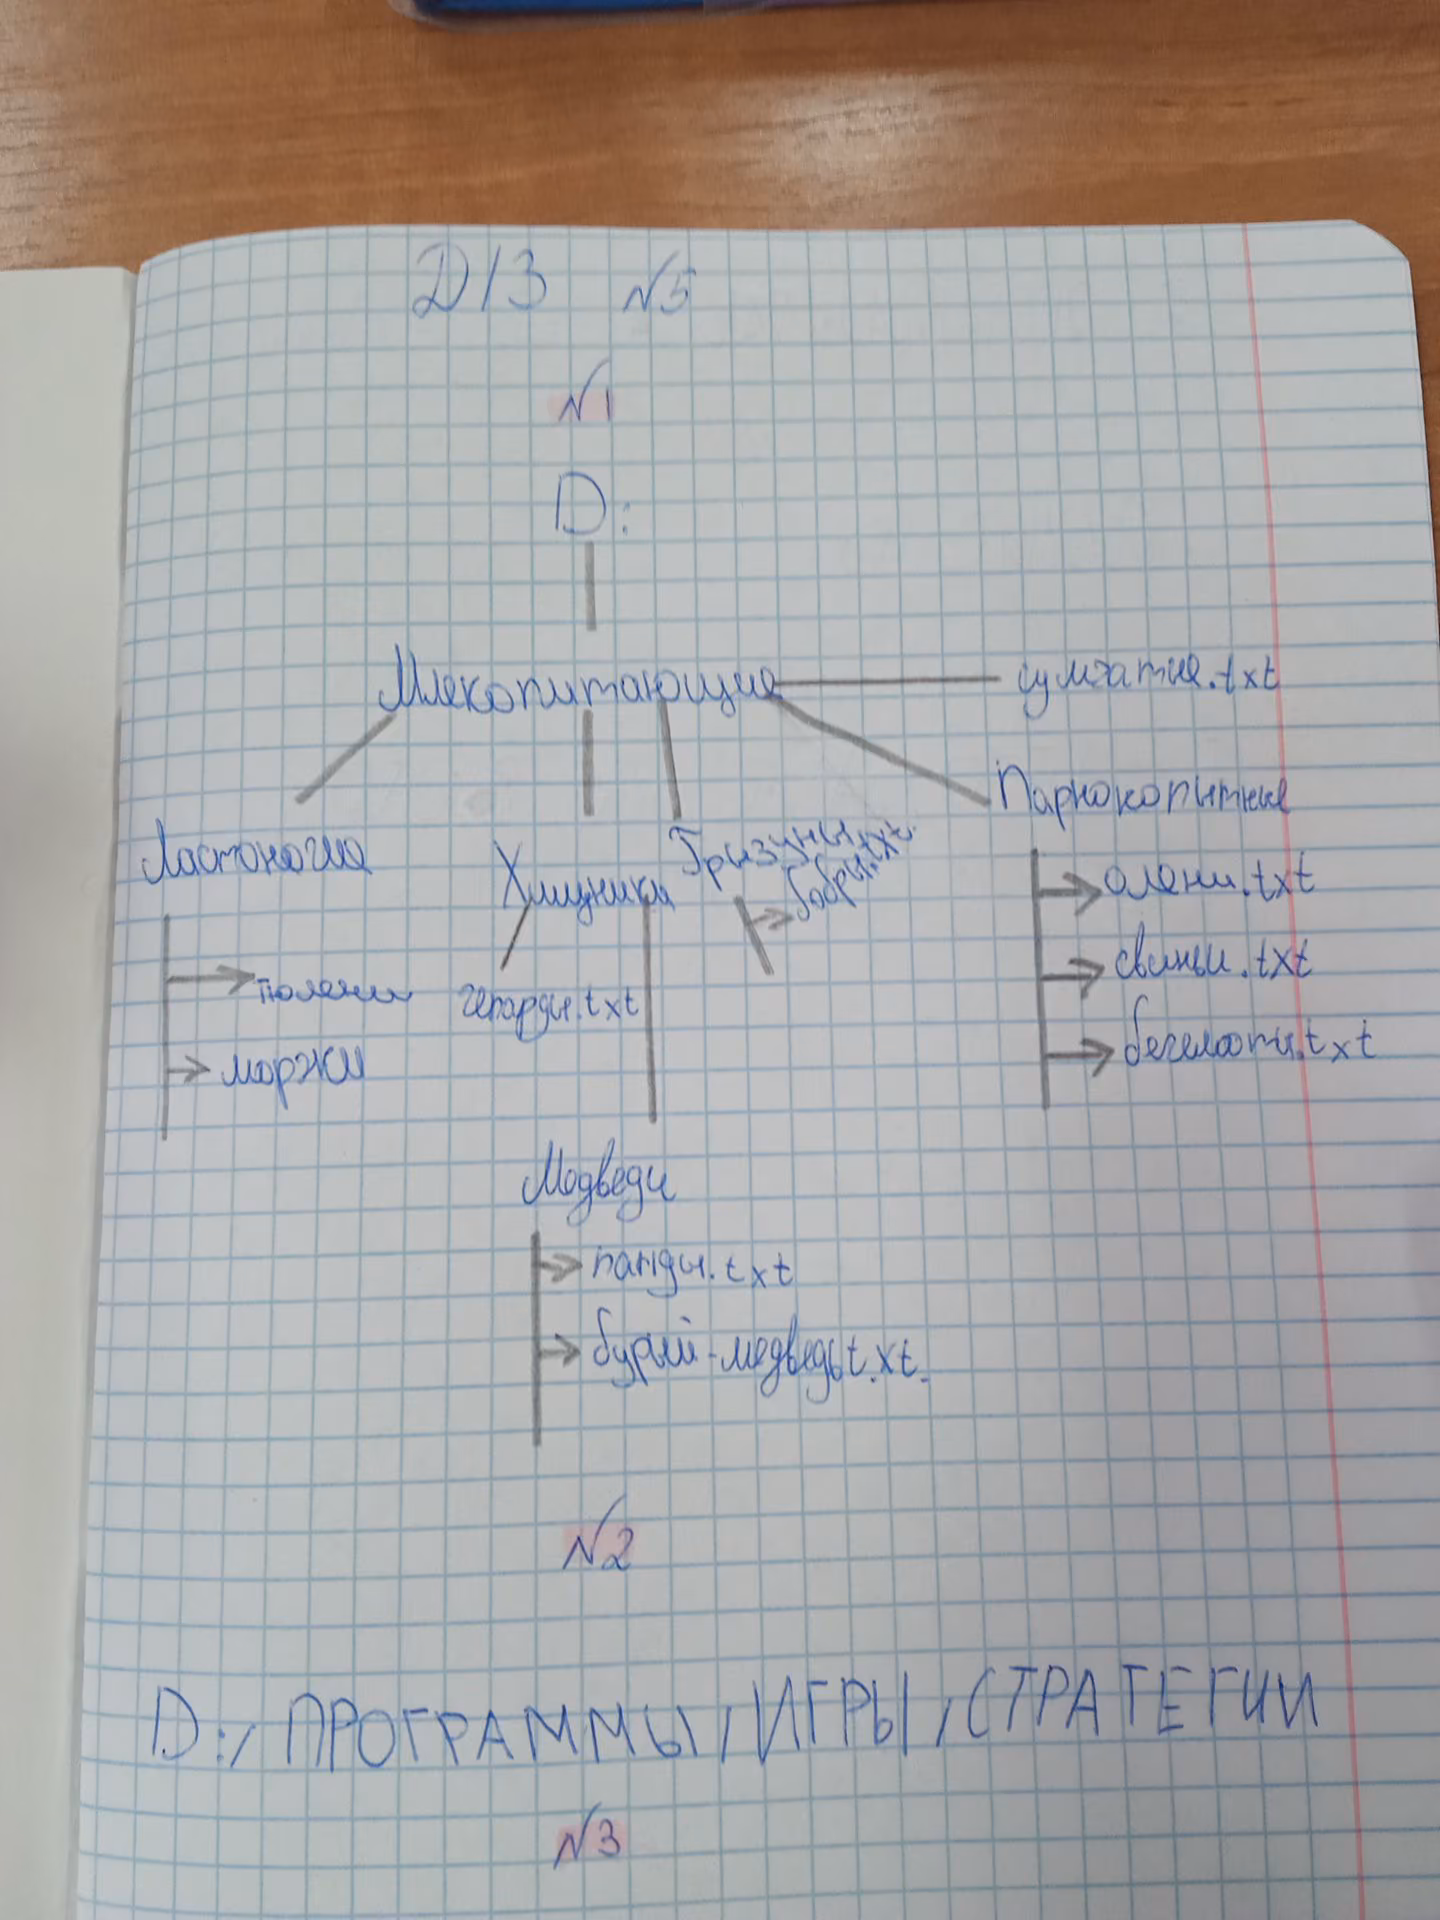 Д/З №5
№1
D:
Млекопитающие
сумчатые.txt
Парнокопытные
Ластоногие
Хищники
Грызуны
бобры.txt
олени.txt
свиньи.txt
бегемоты.txt
тюлени
моржи
гепарды.txt
Медведи
панды.txt
бурый-медведьt.xt.
№2
D:/ПРОГРАММЫ/ИГРЫ/СТРАТЕГИИ
№3